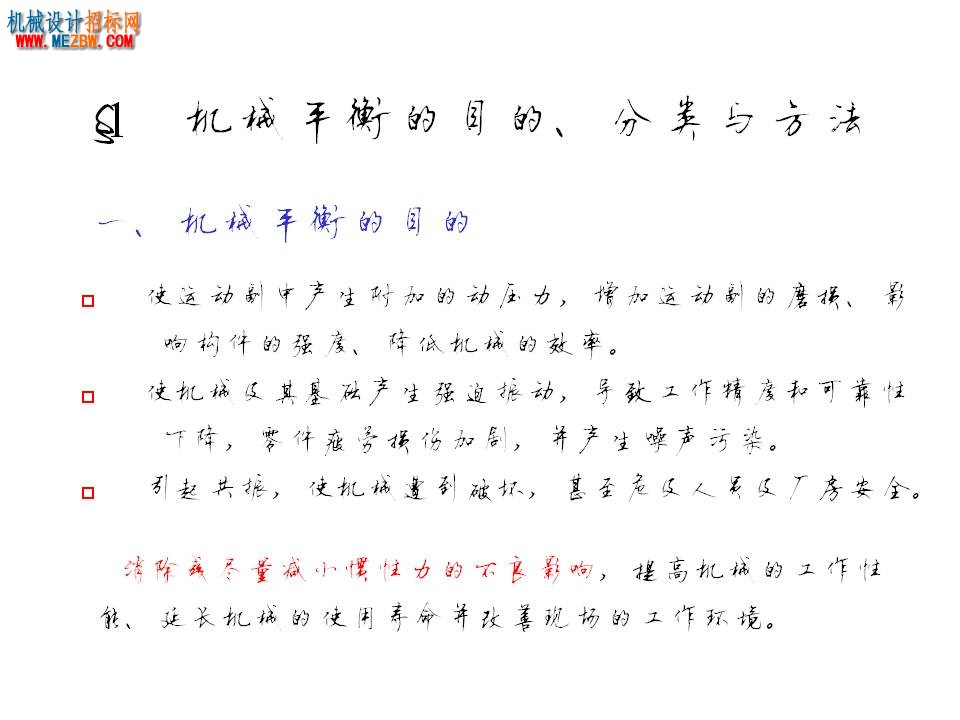 机械设计招标网
WWW.MEZBW.COM
§1 机械平衡的目的、分类与方法
一、机械平衡的目的
使运动副中产生附加的动压力，增加运动副的磨损、影
响构件的强度、降低机械的效率。
使机械及其基础产生强迫振动，导致工作精度和可靠性
下降，零件疲劳损伤加剧，并产生噪声污染。
引起共振，使机械遭到破坏，甚至危及人员及厂房安全。
消除或尽量减小惯性力的不良影响，提高机械的工作性
能、延长机械的使用寿命并改善现场的工作环境。